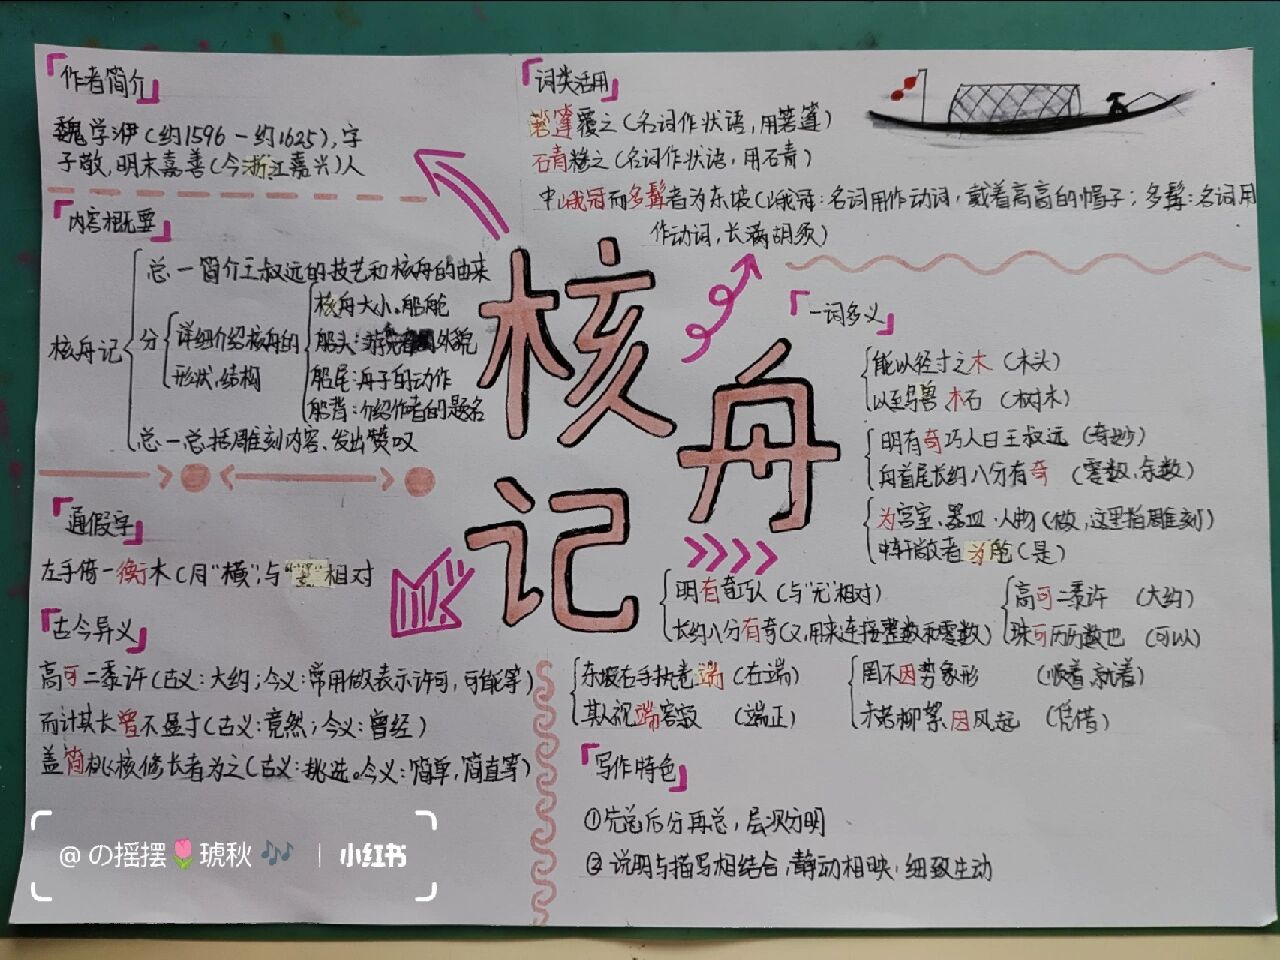 「作者简介」
魏学洢(约1596-约1625),字
子敬,明末嘉善(今浙江嘉兴)人
「内容概要」
核舟记
总一简介王叔远的技艺和核舟的由来
分
详细介绍核舟的
形状、结构
核舟大小、船舱
船头:游
外貌
船尾:舟子的动作
船背:介绍作者的题名
总一总括雕刻内容、发出赞叹
「通假字」
左手倚一衡木(同"横",与"竖"相对
「古今异义」
高可二黍许(古义:大约;今义:常用做表示许可,可能等)
而计其长曾不盈寸(古义:竟然;今义:曾经)
盖简桃核修长者为之(古义:挑选。今义:简单,简直等)
核舟记
「词类活用」
箬篷覆之(名词作状语,用箬篷)
石青糁之(名词作状语,用石青)
中峨冠而多髯者为东坡(峨冠:名词用作动词,戴着高高的帽子;多髯:名词用
作动词,长满胡须)
「一词多义」
能以径寸之木(木头)
以至鸟兽、木石(树木)
明有奇巧人曰王叔远(奇妙)
舟首尾长约八分有奇(零数、余数)
为宫室、器皿、人物(做,这里指雕刻)
中轩敞者为舱(是)
明有奇巧人(与"无"相对)
长约八分有奇(又,用来连接整数和零数)
高可二黍许(大约)
珠可历历数也(可以)
东坡右手执卷端(右端)
其人视端容寂(端正)
罔不因势象形(顺着、就着)
未若柳絮因风起(凭借)
「写作特色」
①先总后分再总,层次分明
②说明与描写相结合,静动相映,细致生动
@の摇摆🌷琥秋🎶 | 小红书